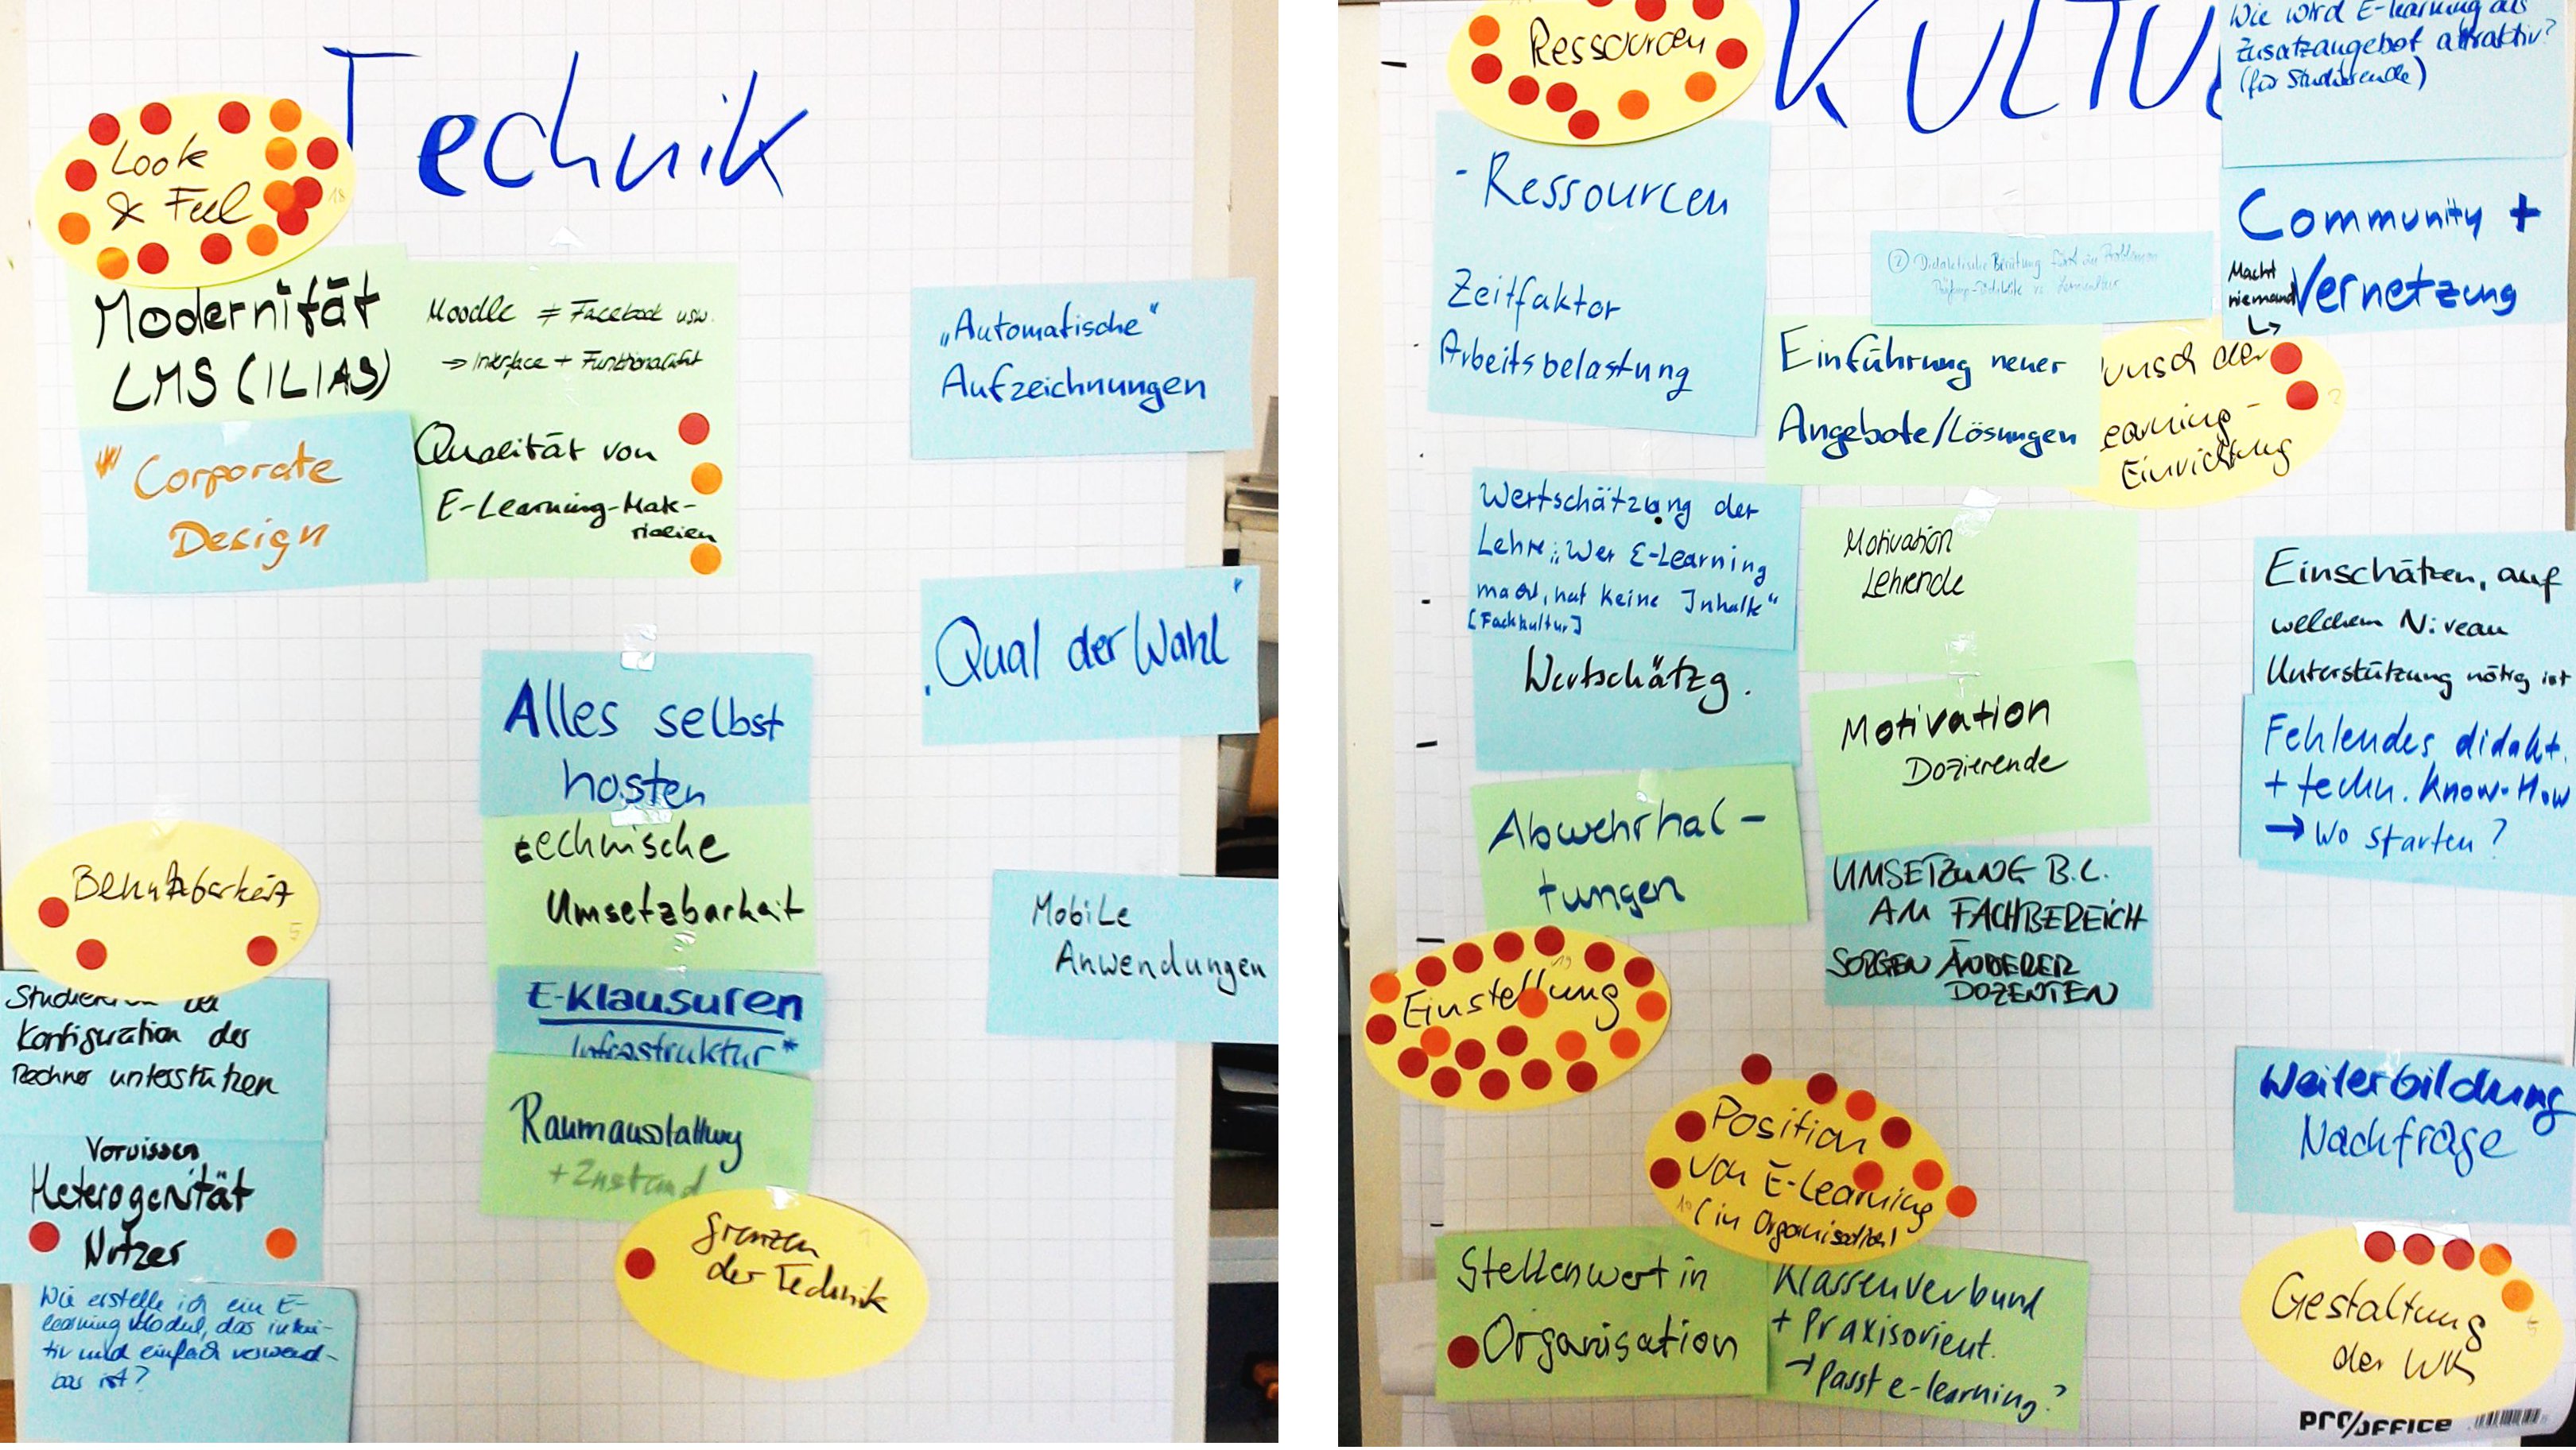 Technik
Look
& Feel
18
Modernität
LMS (ILIAS)
Corporate
Design
Moodle ≠ Facebook usw.
→ Interface + Funktionalität
Qualität von
E-Learning-Mate-
rialien
„Automatische“
Aufzeichnungen
„Qual der Wahl“
Alles selbst
hosten
technische
Umsetzbarkeit
E-Klausuren
Infrastruktur*
Raumausstattung
+ Zustand
Grenzen
der Technik
Mobile
Anwendungen
Benutzbarkeit
5
Studierende bei
Konfiguration der
Rechner unterstützen
Vorwissen
Heterogenität
Nutzer
Wie erstelle ich ein E-
learning Modul, das intui-
tiv und einfach verwend-
bar ist?
Ressourcen
KULTU
- Ressourcen
Zeitfaktor
Arbeitsbelastung
Wie wird E-learning als
Zusatzangebot attraktiv?
(für Studierende)
Community +
Vernetzung
Macht
niemand
↳
② Didaktische Beratung
Einführung neuer
Angebote/Lösungen
unsch der
earning-
Einrichtung
2
Wertschätzung der
Lehre: „Wer E-Learning
macht, hat keine Inhalte“
[Fachkultur]
Wertschätzg.
Abwehrhal-
tungen
Motivation
Lehrende
Motivation
Dozierende
UMSETZUNG B.L.
AM FACHBEREICH
SORGEN ANDERER
DOZENTEN
Einschätzen, auf
welchem Niveau
Unterstützung nötig ist
Fehlendes didakt.
+ techn. Know-How
→ Wo starten?
Einstellung
19
Position
von E-Learning
(in Organisation)
Stellenwert in
Organisation
Klassenverbund
+ Praxisorient.
→ Passt e-learning?
Weiterbildung
Nachfrage
Gestaltung
der WK
5
PRO/OFFICE